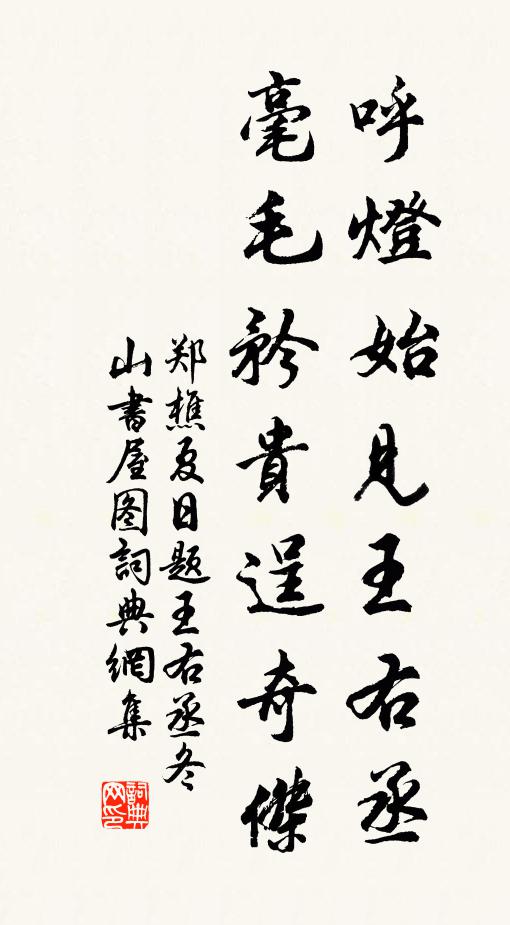 呼燈始見王右丞
毫毛矜貴逞奇傑
郑樵夏日题王右丞冬
山書屋图詞典網集
詞典
网印